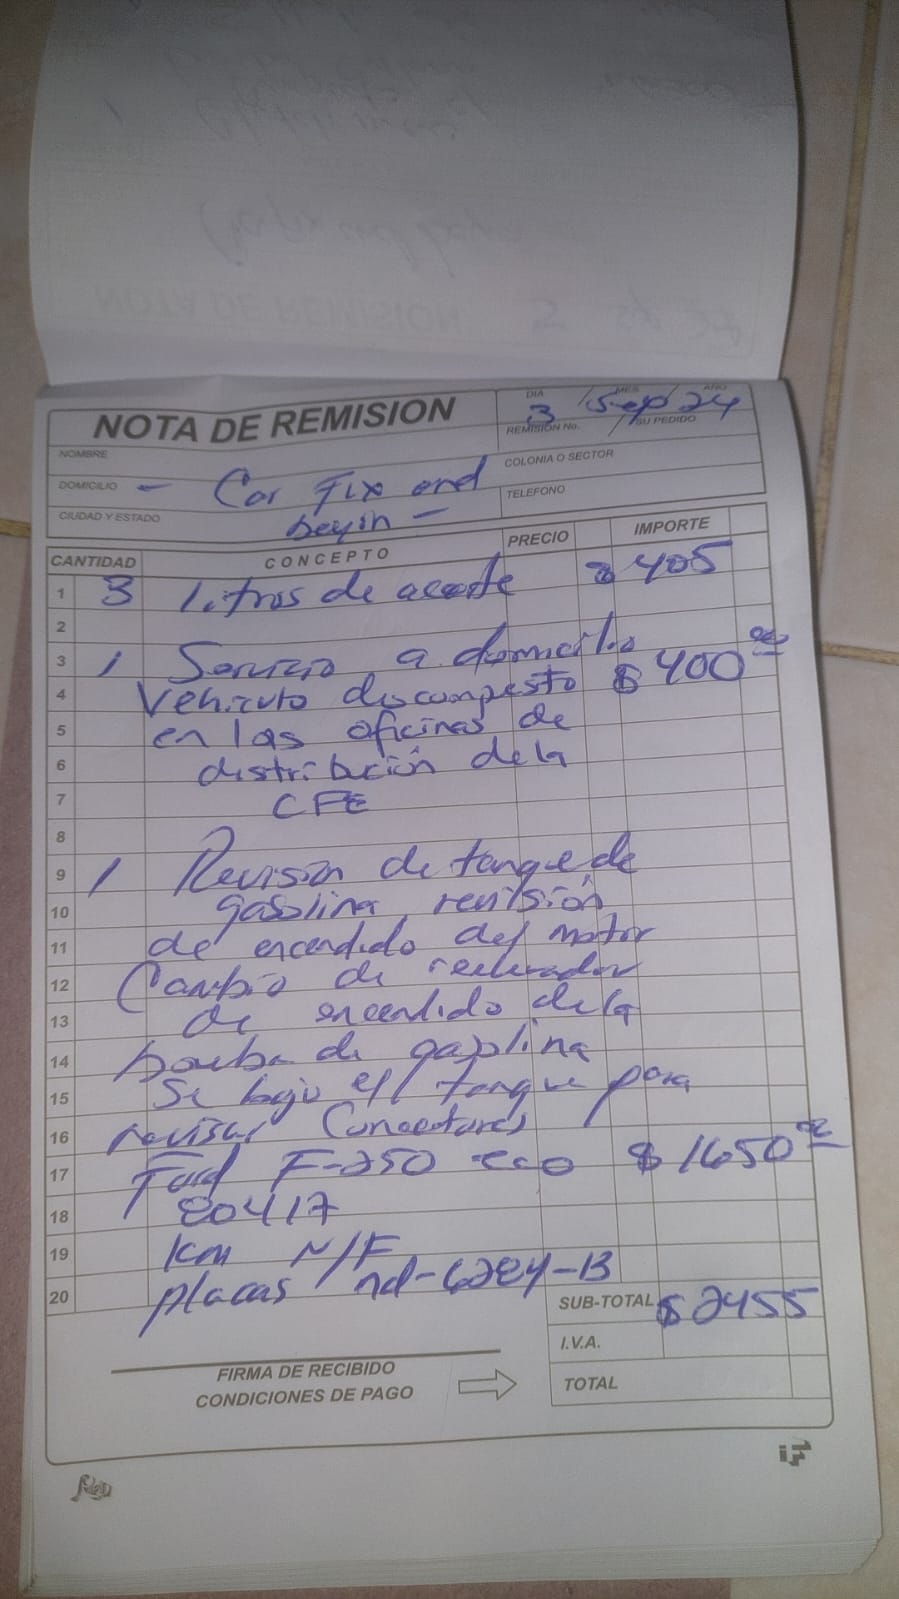 NOTA DE REMISION
DIA MES AÑO
3 / Sep / 24
REMISIÓN No. SU PEDIDO
NOMBRE
COLONIA O SECTOR
DOMICILIO - Car Fix and
TELEFONO
CIUDAD Y ESTADO
begin -
CANTIDAD CONCEPTO PRECIO IMPORTE
1 3 litros de aceite $ 405
2
3 1 Servicio a domicilio
4 Vehiculo descompesto $ 400 00
5 en las oficinas de
6 distribución de la
7 CFE
8
9 1 Revisión de tanque de
10 gasolina revisión
11 de encendido del motor
12 Cambio de relevador
13 de encendido de la
14 bomba de gasolina
15 Se bajo el tanque para
16 revisar Conectores
17 Ford F-250 eco $ 1650 00
18 80417
19 Km N/F
20 placas nd-6284-B
SUB-TOTAL $ 2455
I.V.A.
TOTAL
FIRMA DE RECIBIDO
CONDICIONES DE PAGO